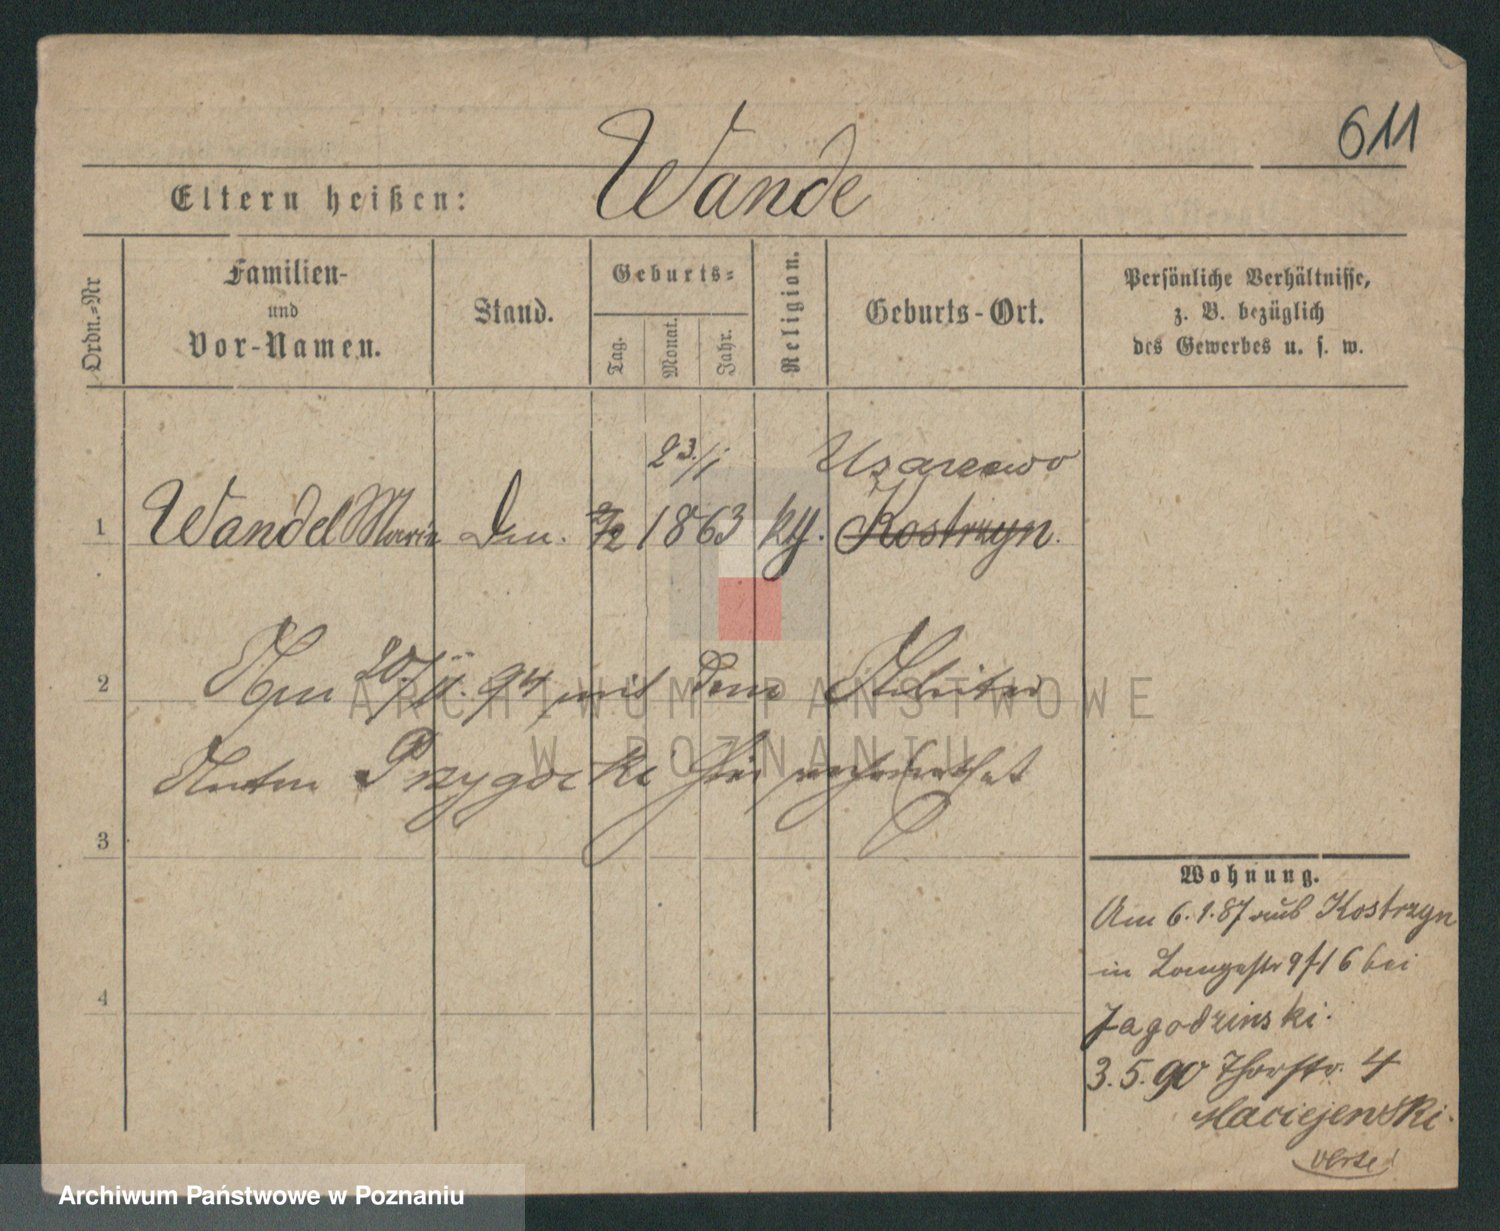 611
Wande
Eltern heißen:
Ordn.-Nr
Familien-
und
Vor-Namen.
Stand.
Geburts-
Tag.
Monat.
Jahr.
Religion.
Geburts-Ort.
Persönliche Verhältnisse,
z. B. bezüglich
des Gewerbes u. s. w.
23/1 Usarzewo
1 Wandel Marie 1863 Kostrzyn.
2 Am 20/II. 94 mit dem Arbeiter
Anton Przygocki hier verheirathet
3
4
Wohnung.
Am 6.1.87 aus Kostrzyn
in Langestr 9/16 bei
Jagodzinski.
3.5.90 Thorstr. 4
Maciejewski.
verte!
ARCHIWUM PAŃSTWOWE
W POZNANIU
Archiwum Państwowe w Poznaniu